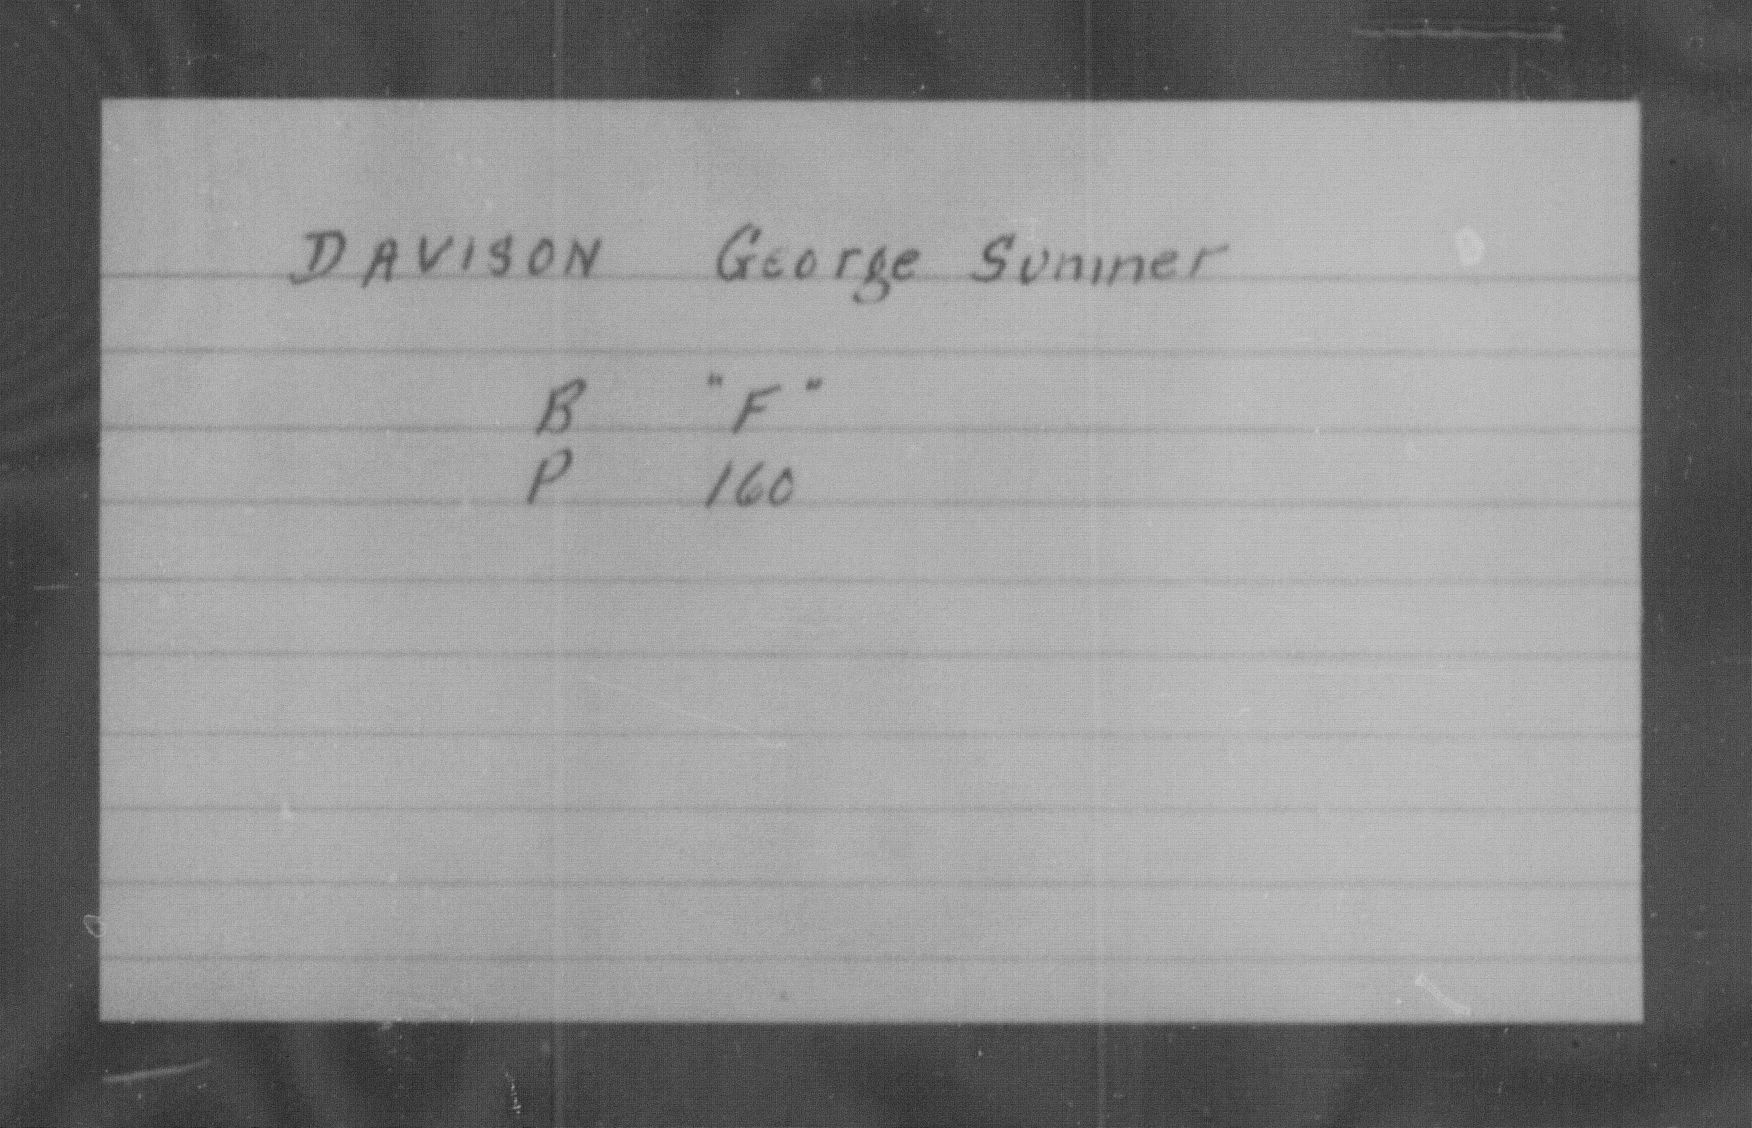 DAVISON George Sumner
B "F"
P 160